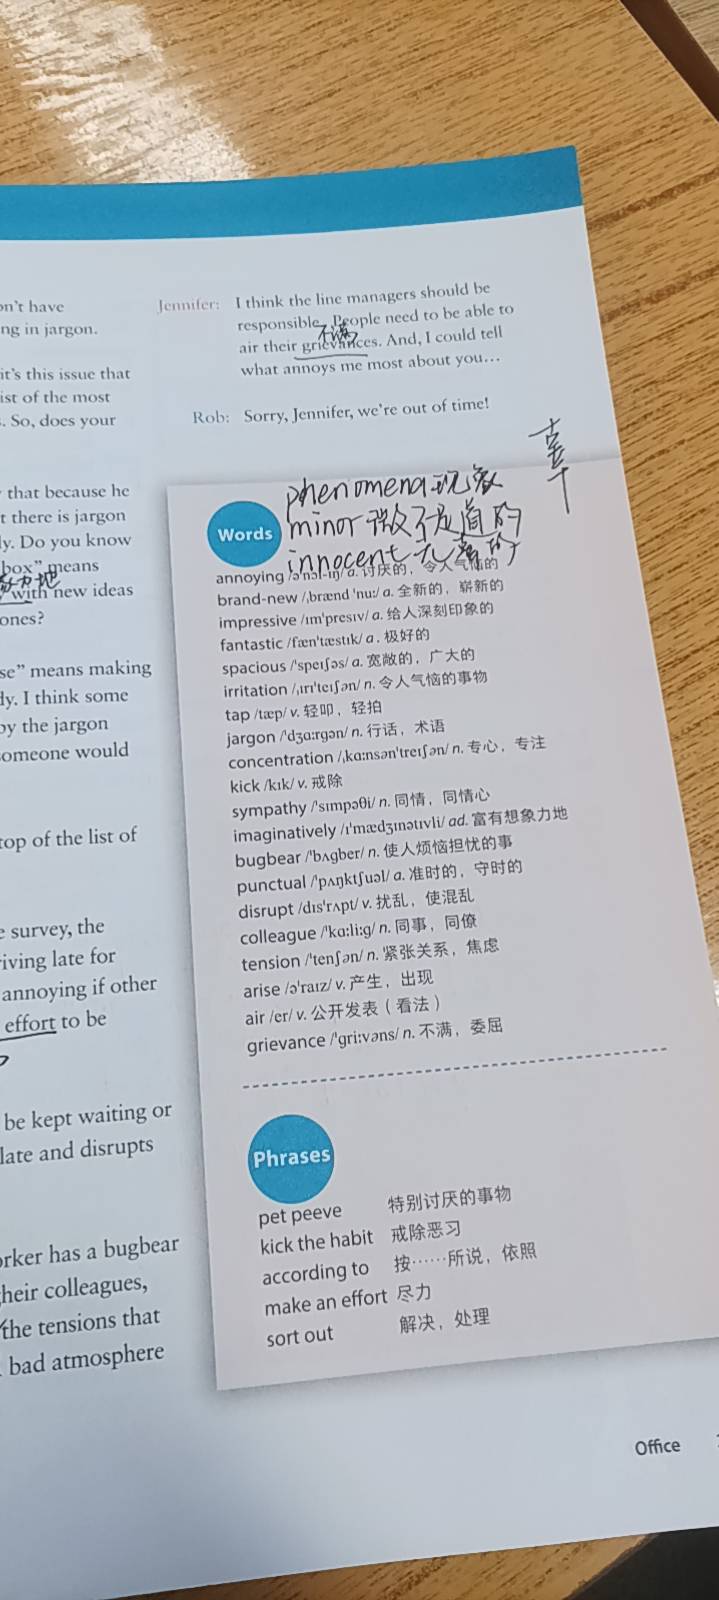 on't have
ng in jargon.
it's this issue that
ist of the most
. So, does your
that because he
t there is jargon
ly. Do you know
box" means
力地
with new ideas
ones?
se" means making
ly. I think some
by the jargon
omeone would
top of the list of
e survey, the
iving late for
annoying if other
effort to be
be kept waiting or
late and disrupts
orker has a bugbear
heir colleagues,
the tensions that
bad atmosphere
Jennifer: I think the line managers should be
responsible. People need to be able to
不满
air their grievances. And, I could tell
what annoys me most about you…
Rob: Sorry, Jennifer, we're out of time!
phenomena 现象
Words
minor 微不足道的
innocent 无辜的
annoying /ə'nɔɪ-ɪŋ/ a. 讨厌的，令人气恼的
brand-new /ˌbrænd 'nuː/ a. 全新的，崭新的
impressive /ɪm'presɪv/ a. 给人深刻印象的
fantastic /fæn'tæstɪk/ a. 极好的
spacious /'speɪʃəs/ a. 宽敞的，广大的
irritation /ˌɪrɪ'teɪʃən/ n. 令人气恼的事物
tap /tæp/ v. 轻叩，轻拍
jargon /'dʒɑːrgən/ n. 行话，术语
concentration /ˌkɑːnsən'treɪʃən/ n. 专心，专注
kick /kɪk/ v. 戒除
sympathy /'sɪmpəθi/ n. 同情，同情心
imaginatively /ɪ'mædʒɪnətɪvli/ ad. 富有想象力地
bugbear /'bʌgber/ n. 使人烦恼担忧的事
punctual /'pʌŋktʃuəl/ a. 准时的，守时的
disrupt /dɪs'rʌpt/ v. 扰乱，使混乱
colleague /'kɑːliːg/ n. 同事，同僚
tension /'tenʃən/ n. 紧张关系，焦虑
arise /ə'raɪz/ v. 产生，出现
air /er/ v. 公开发表（看法）
grievance /'griːvəns/ n. 不满，委屈
Phrases
pet peeve 特别讨厌的事物
kick the habit 戒除恶习
according to 按……所说，依照
make an effort 尽力
sort out 解决，处理
Office